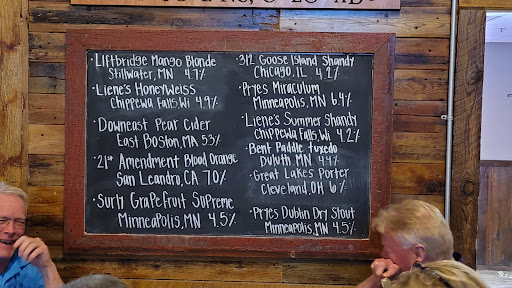 ·Liftbridge Mango Blonde
Stillwater, MN 4.7%
·Liene's HoneyWeiss
Chippewa Falls, WI 4.9%
·Downeast Pear Cider
East Boston, MA 5.1%
·21st Amendment Blood Orange
San Leandro, CA 7.0%
·Surly Grapefruit Supreme
Minneapolis, MN 4.5%
·312 Goose Island Shandy
Chicago, IL 4.2%
·Pryes Miraculum
Minneapolis, MN 6.4%
·Liene's Summer Shandy
Chippewa Falls, WI 4.2%
·Bent Paddle Tuxedo
Duluth, MN 4.4%
·Great Lakes Porter
Cleveland, OH 6%
·Pryes Dublin Dry Stout
Minneapolis, MN 4.5%